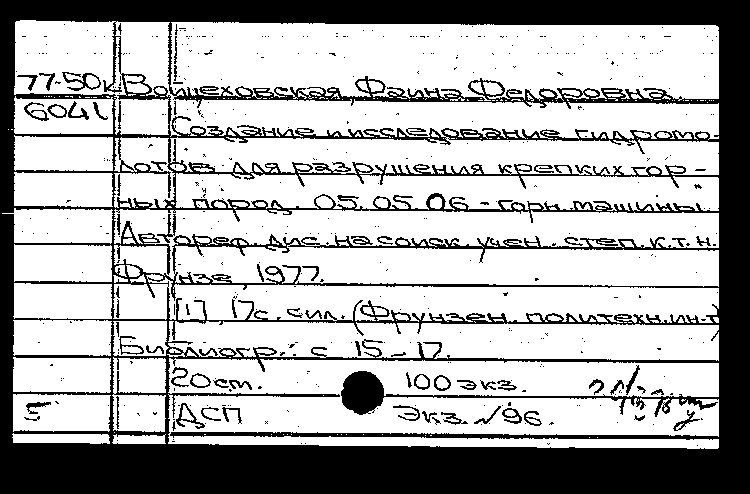 77-50к Войцеховская, Фаина Федоровна.
6041
Создание и исследование гидромо-
лотов для разрушения крепких гор-
ных пород. 05.05.06 - горн. машины.
Автореф. дис. на соиск. учен. степ. к.т.н.
Фрунзе, 1977.
[1], 17с. с ил. (Фрунзен. политехн. ин-т)
Библиогр.: с 15-17.
20см. 100 экз.
5 ДСП Экз. №96.